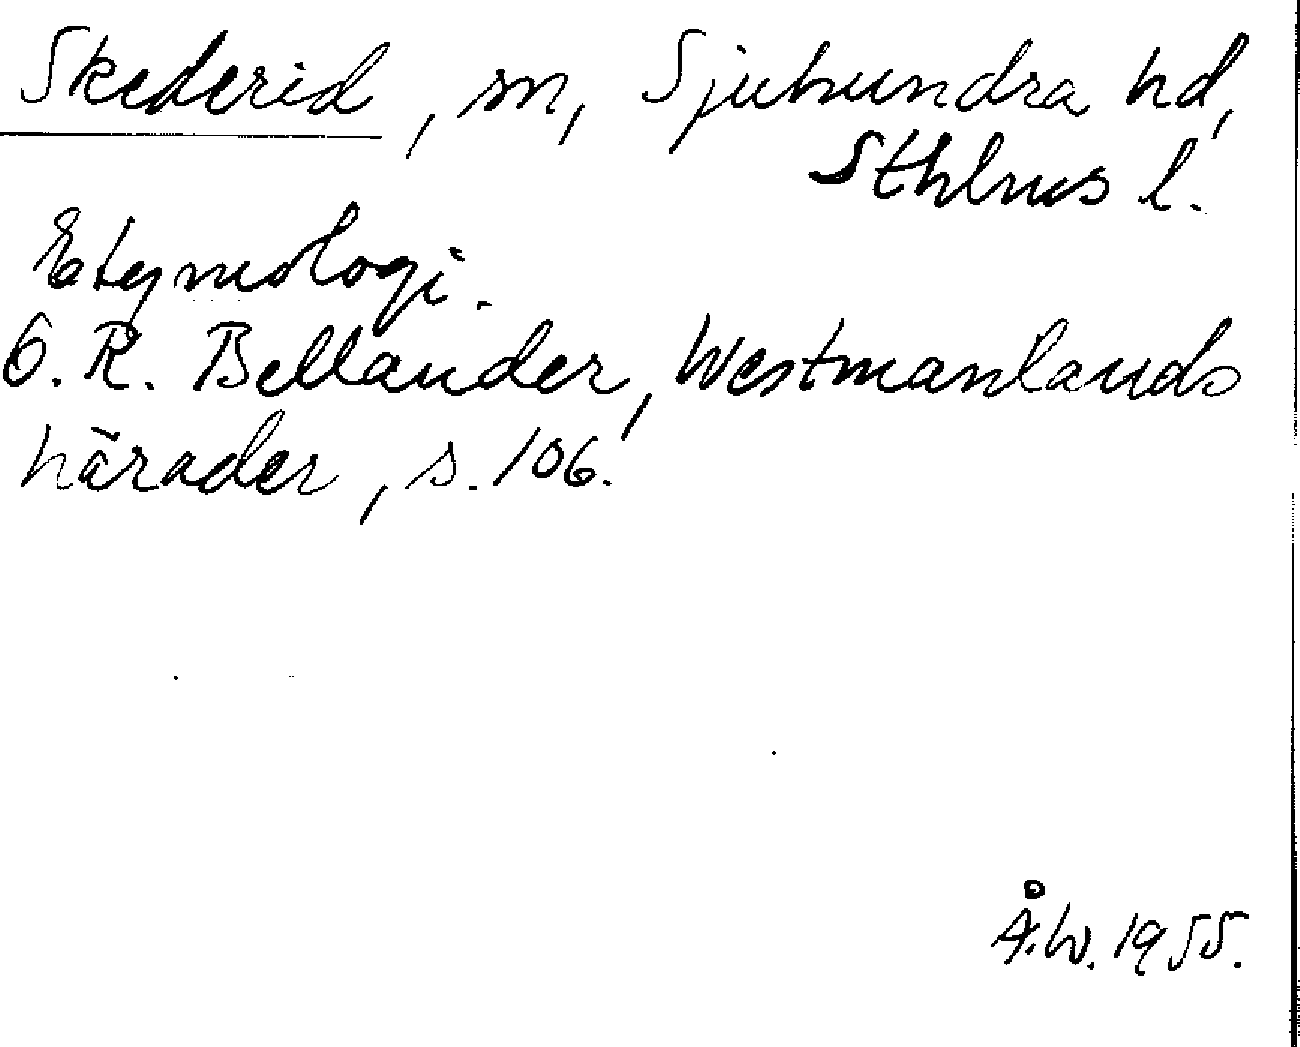 Skederid, sn, Sjuhundra hd,
Sthlms l.
Etymologi.
O. R. Bellander, Westmanlands
härader, s. 106.
Å. W. 1955.